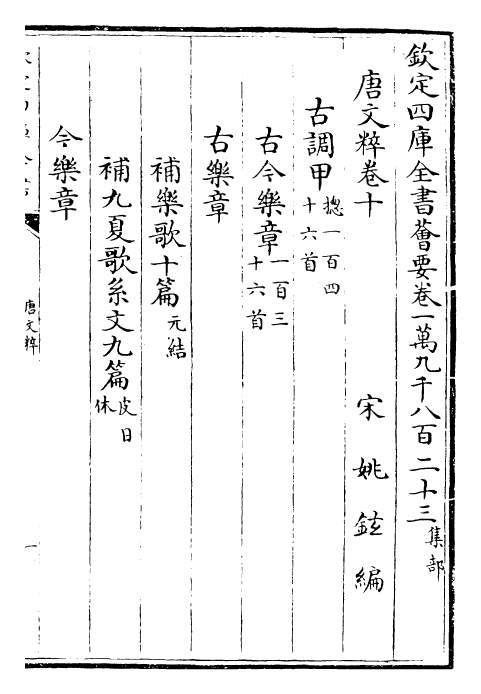 欽定四庫全書薈要卷一萬九千八百二十三集部
唐文粹卷十
宋姚鉉編
古調甲摠一百四十六首
古今樂章一百三十六首
古樂章
補樂歌十篇元結
補九夏歌系文九篇皮日休
今樂章
唐文粹
一